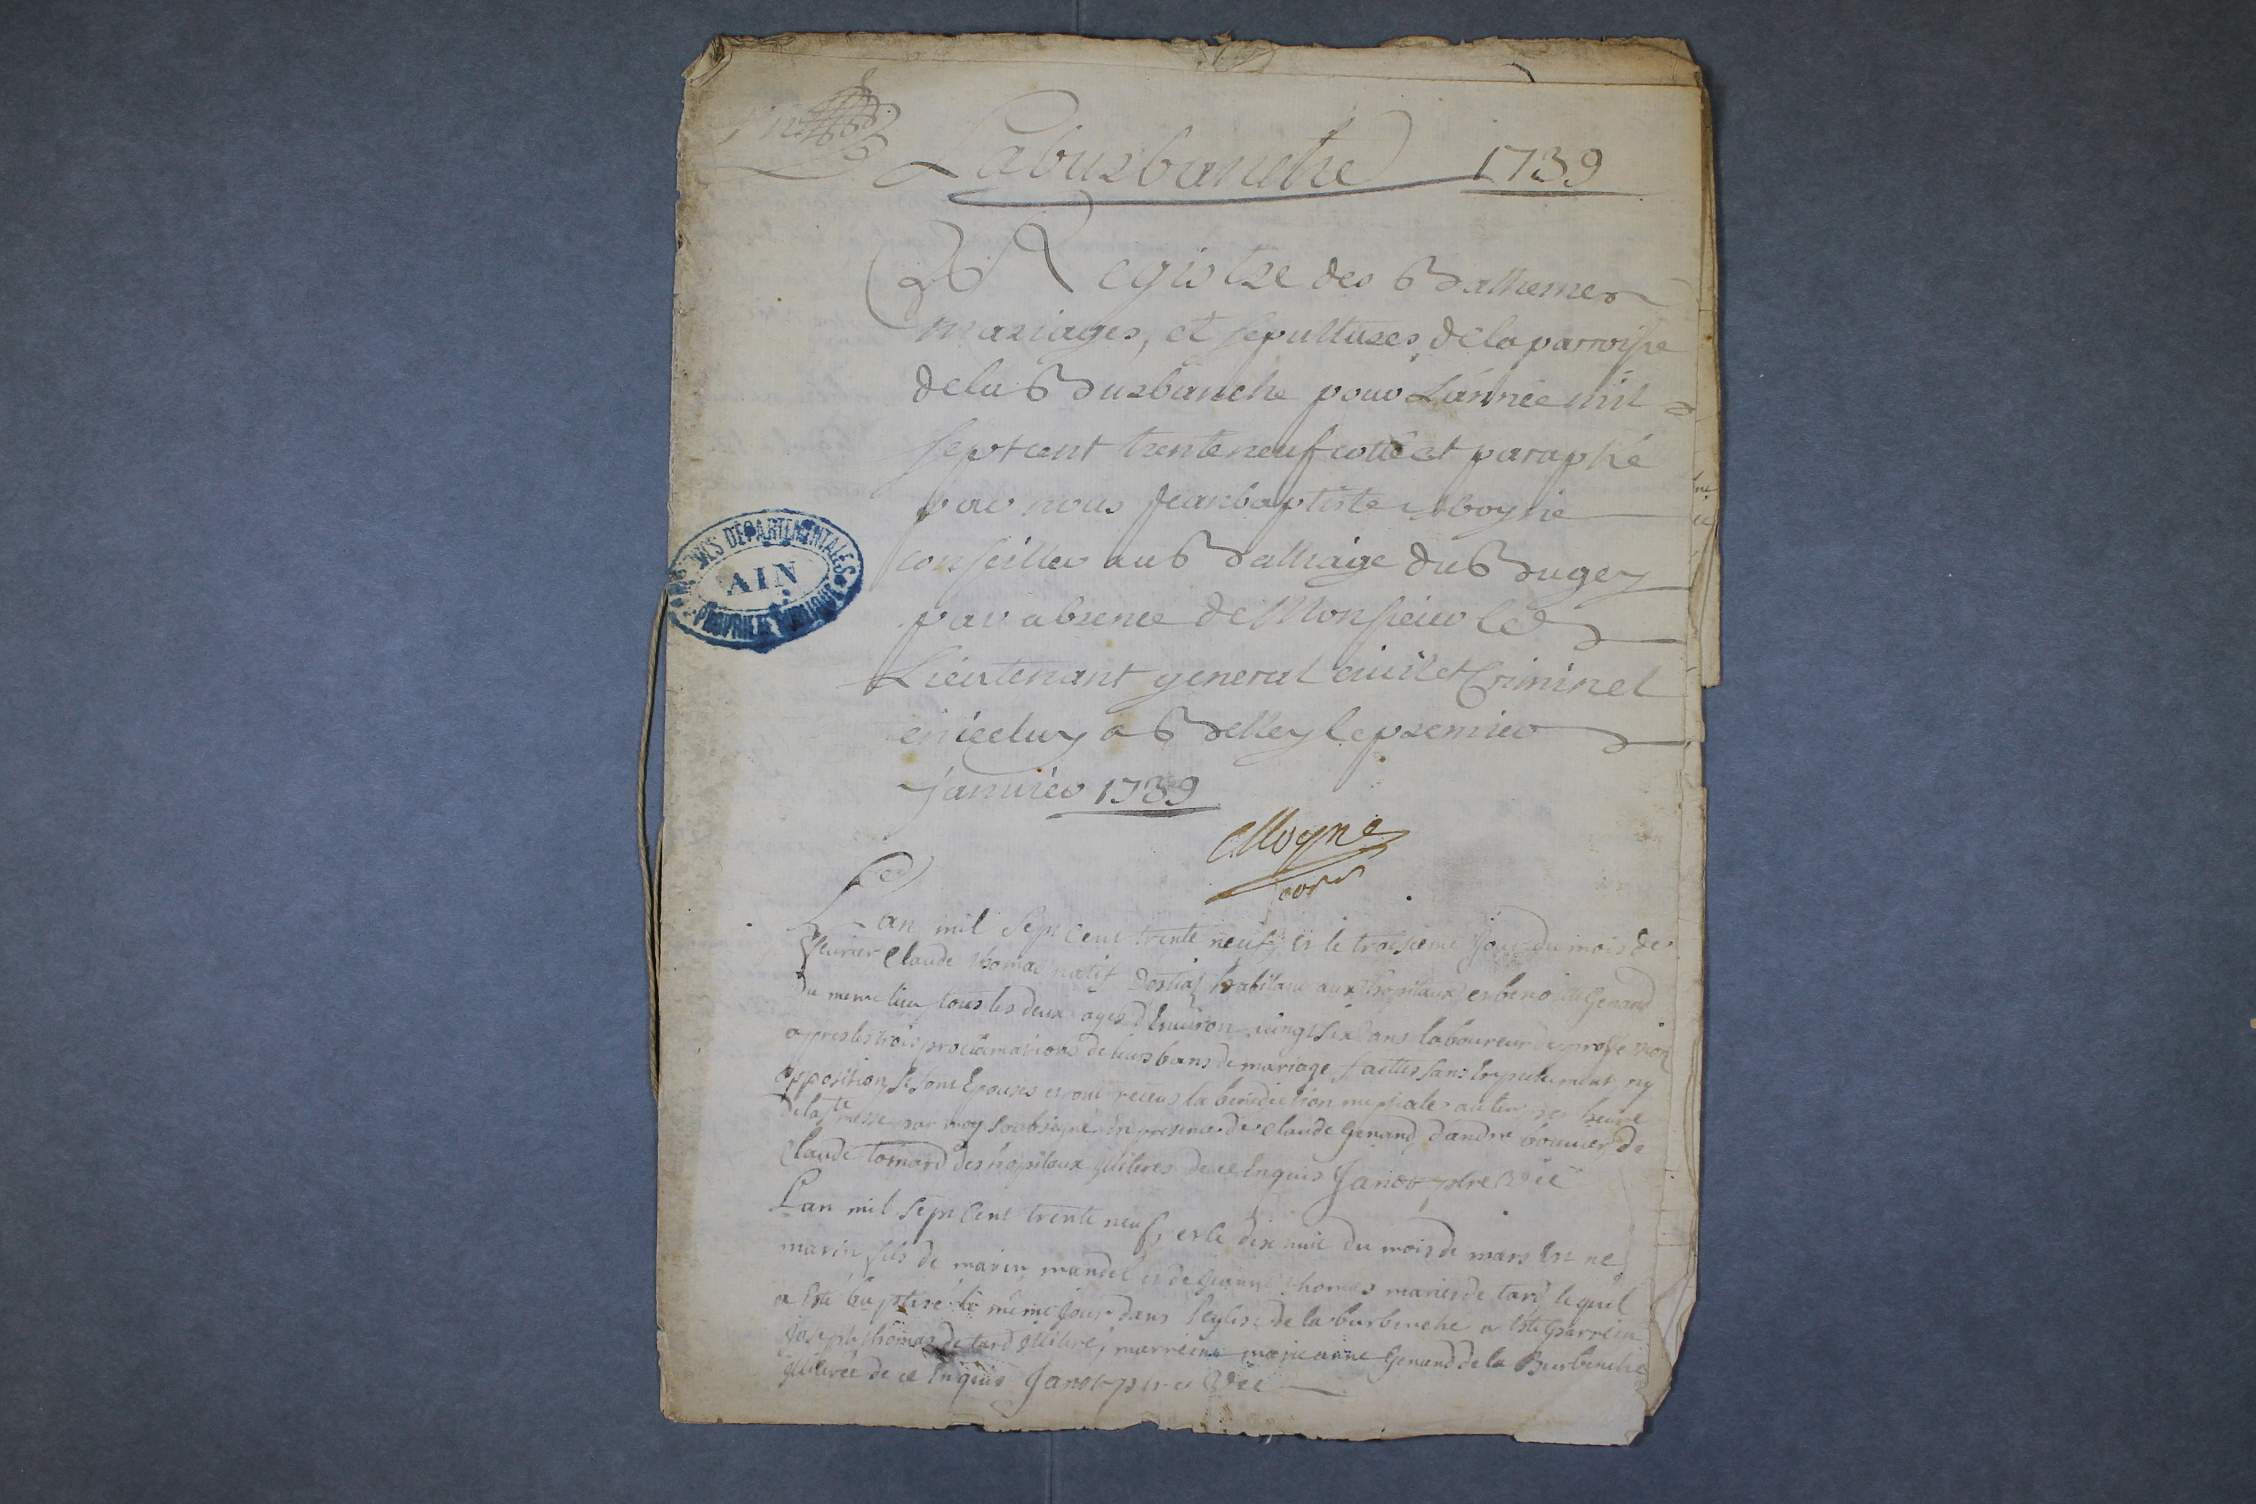 Laburbanche 1739
Registre des Bathemes
mariages, et sepultures de la parroisse
de la Burbanche pour L'année mil
sept cent trente neuf cotté et paraphé
par nous Jean baptiste Moyne
conseiller au Balliage du Bugey
par absence de Monsieur le
Lieutenant general civil et Criminel
en iceluy a Belley le premier
janvier 1739
Moyne
ARCHIVES DEPARTEMENTALES
AIN
PROPRIETE PUBLIQUE
Lan mil sept cent trente neuf, et le troisieme jour du mois de
fevrier Claude thomas natif Dostiaz habitant aux hopitaux et benoite Genand
du meme lieu tous les deux agés d'Environ vingt six ans laboureur de profession
apres les trois proclamations de leurs bans de mariage faittes sans Empechement ny
opposition, se sont Epousés et ont receus la benediction nuptiale heure
de la messe par moy soubsigné En presence de Claude Genand, d'andre bouvier de
Claude tomard des hopitaux illiteres de ce Enquis Janot ptre
Lan mil sept cent trente neuf, et le dix huit du mois de mars Est né
marin fils de marin mandel et de jeanne thomas mariés de tard lequel
a Eté baptisé le même jour dans l'eglise de la burbenche a Eté parrein
joseph thomas de tard illiteré, marreine marie anne Genand de la Burbenche
illiterée de ce Enquis Janot ptre